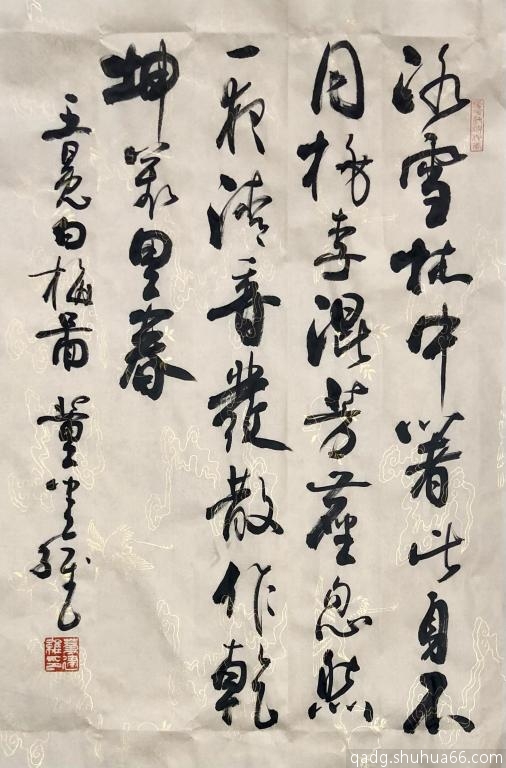 冰雪林中著此身不
同桃李混芳塵忽然
一夜清香發散作乾
坤萬里春
王冕白梅啚 董
qadg.shuhua66.com